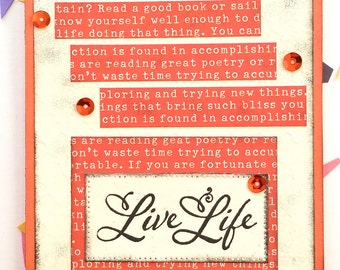 tain? Read a good book or sail
now yourself well enough to d
life doing that thing. You can
ction is found in accomplishin
s are reading great poetry or r
on't waste time trying to accur
ploring and trying new things.
ings that bring such bliss you
ction is found in accomplishin
s are reading great poetry or re
on't waste time trying to accum
ortable. If you are fortunate e
Live Life
ploring and trying new things